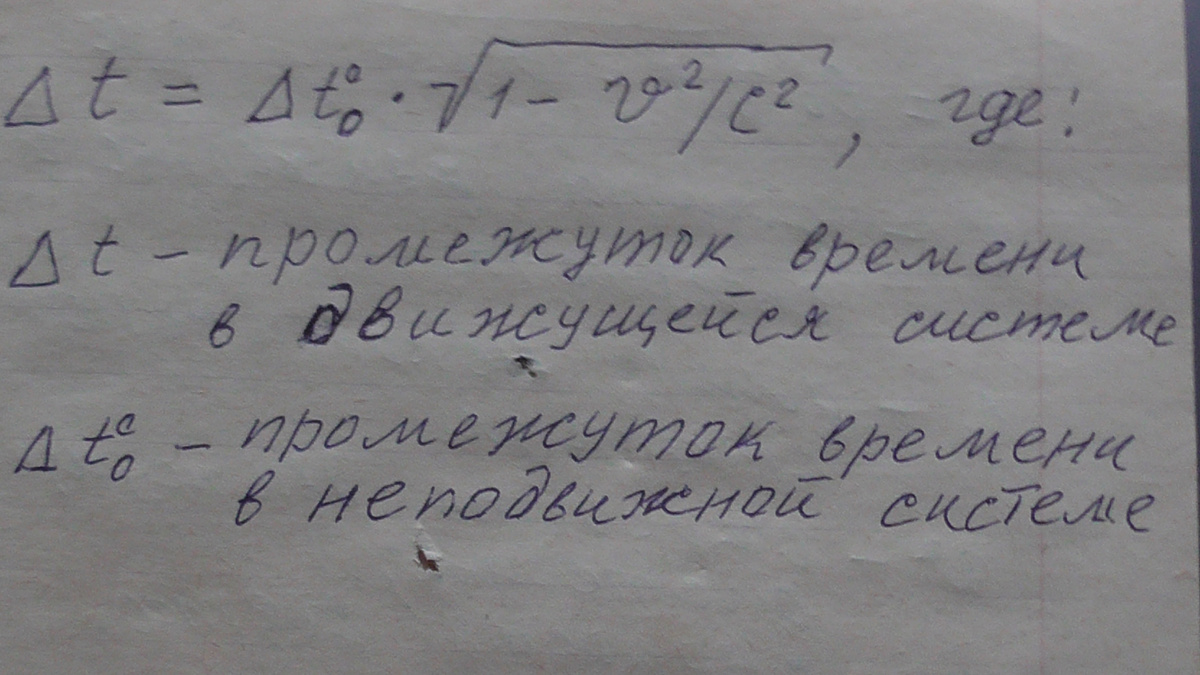 Δt = Δt₀° · √1 - v²/c², где:
Δt - промежуток времени
в движущейся системе
Δt₀ᶜ - промежуток времени
в неподвижной системе